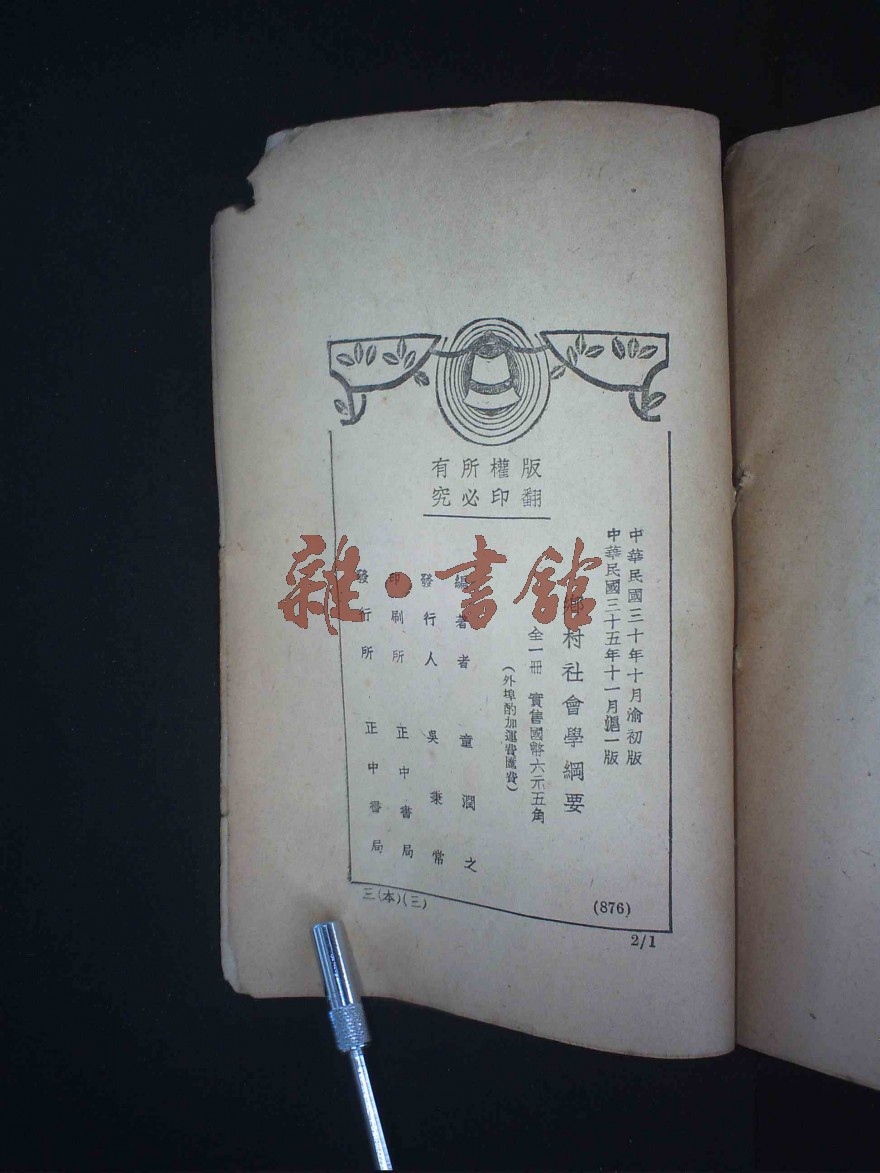 版權所有
翻印必究
中華民國三十年十月渝初版
中華民國三十五年十一月滬一版
鄉村社會學綱要
全一冊 實售國幣六元五角
(外埠酌加運費匯費)
編著者 童潤之
發行人 吳秉常
印刷所 正中書局
發行所 正中書局
(876)
三(本)(三)
2/1
雜·書館